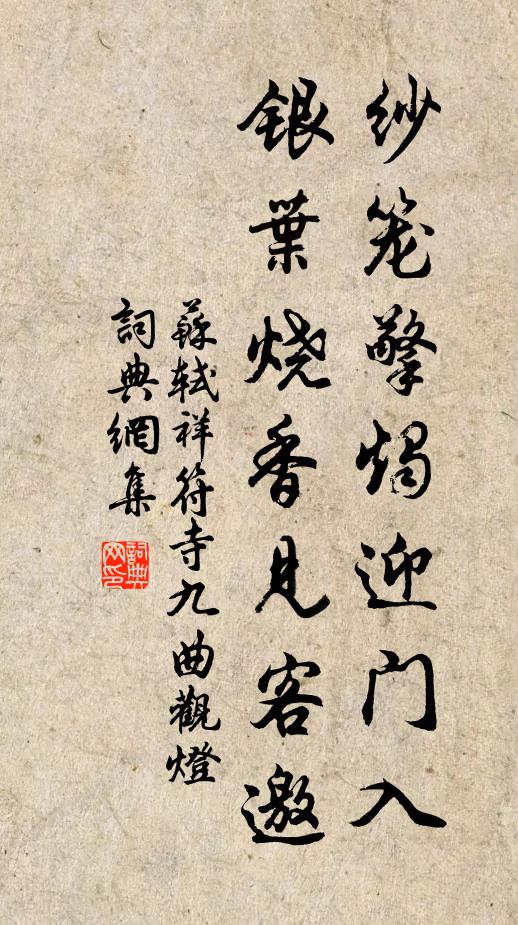 纱笼擎烛迎门入
银葉烧香见客邀
蘇軾祥符寺九曲觀燈
詞典網集
詞典网印